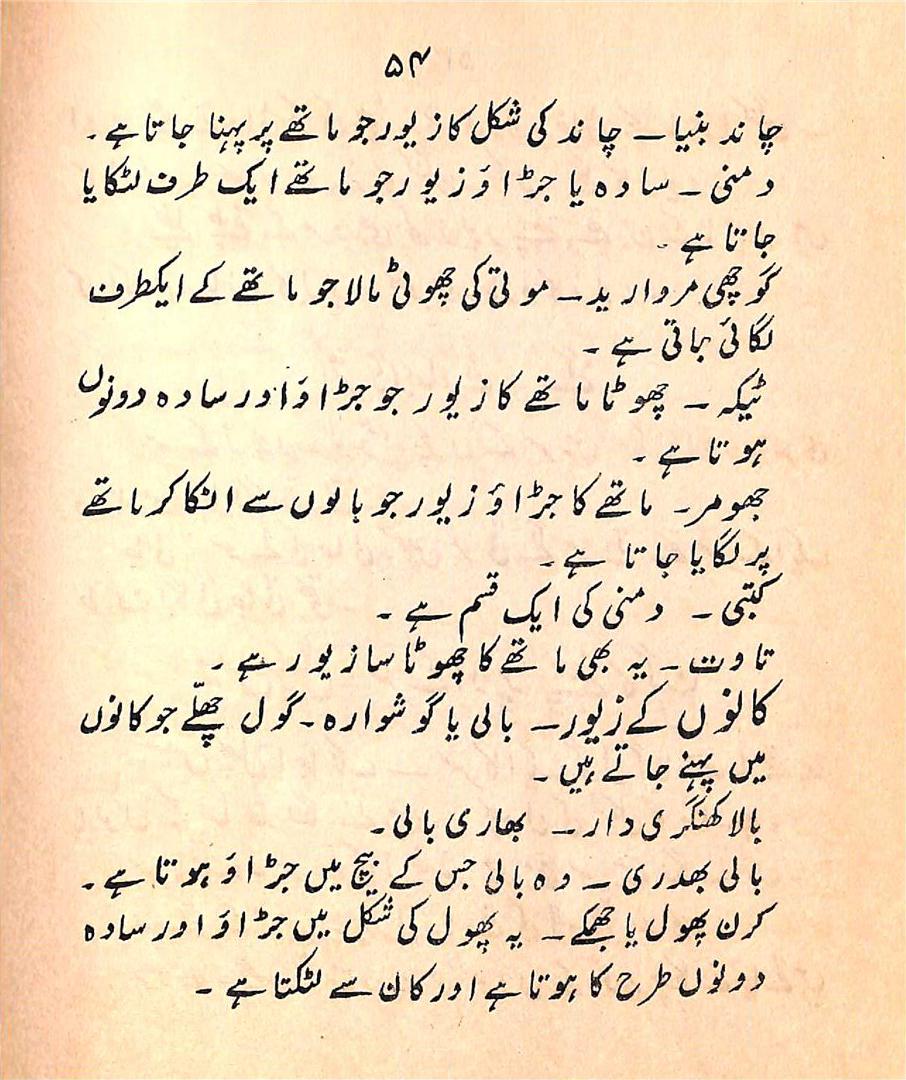 ۵۴
چاند بنیا۔ چاند کی شکل کا زیور جو ماتھے پر پہنا جاتا ہے۔
دمنی۔ سادہ یا جڑاؤ زیور جو ماتھے ایک طرف لٹکایا
جاتا ہے۔
گوچھی مروارید۔ موتی کی چھوٹی مالا جو ماتھے کے ایکطرف
لگائی جاتی ہے۔
ٹیکہ۔ چھوٹا ماتھے کا زیور جو جڑاؤ اور سادہ دونوں
ہوتا ہے۔
جھومر۔ ماتھے کا جڑاؤ زیور جو بالوں سے اٹکا کر ماتھے
پر لگایا جاتا ہے۔
کتبی۔ دمنی کی ایک قسم ہے۔
تاوت۔ یہ بھی ماتھے کا چھوٹا سا زیور ہے۔
کانوں کے زیور۔ بالی یا گوشوارہ۔ گول چھلّے جو کانوں
میں پہنے جاتے ہیں۔
بالا کھنگری دار۔ بھاری بالی۔
بالی بھدری۔ وہ بالی جس کے بیچ میں جڑاؤ ہوتا ہے۔
کرن پھول یا جھمکے۔ یہ پھول کی شکل میں جڑاؤ اور سادہ
دونوں طرح کا ہوتا ہے اور کان سے لٹکتا ہے۔